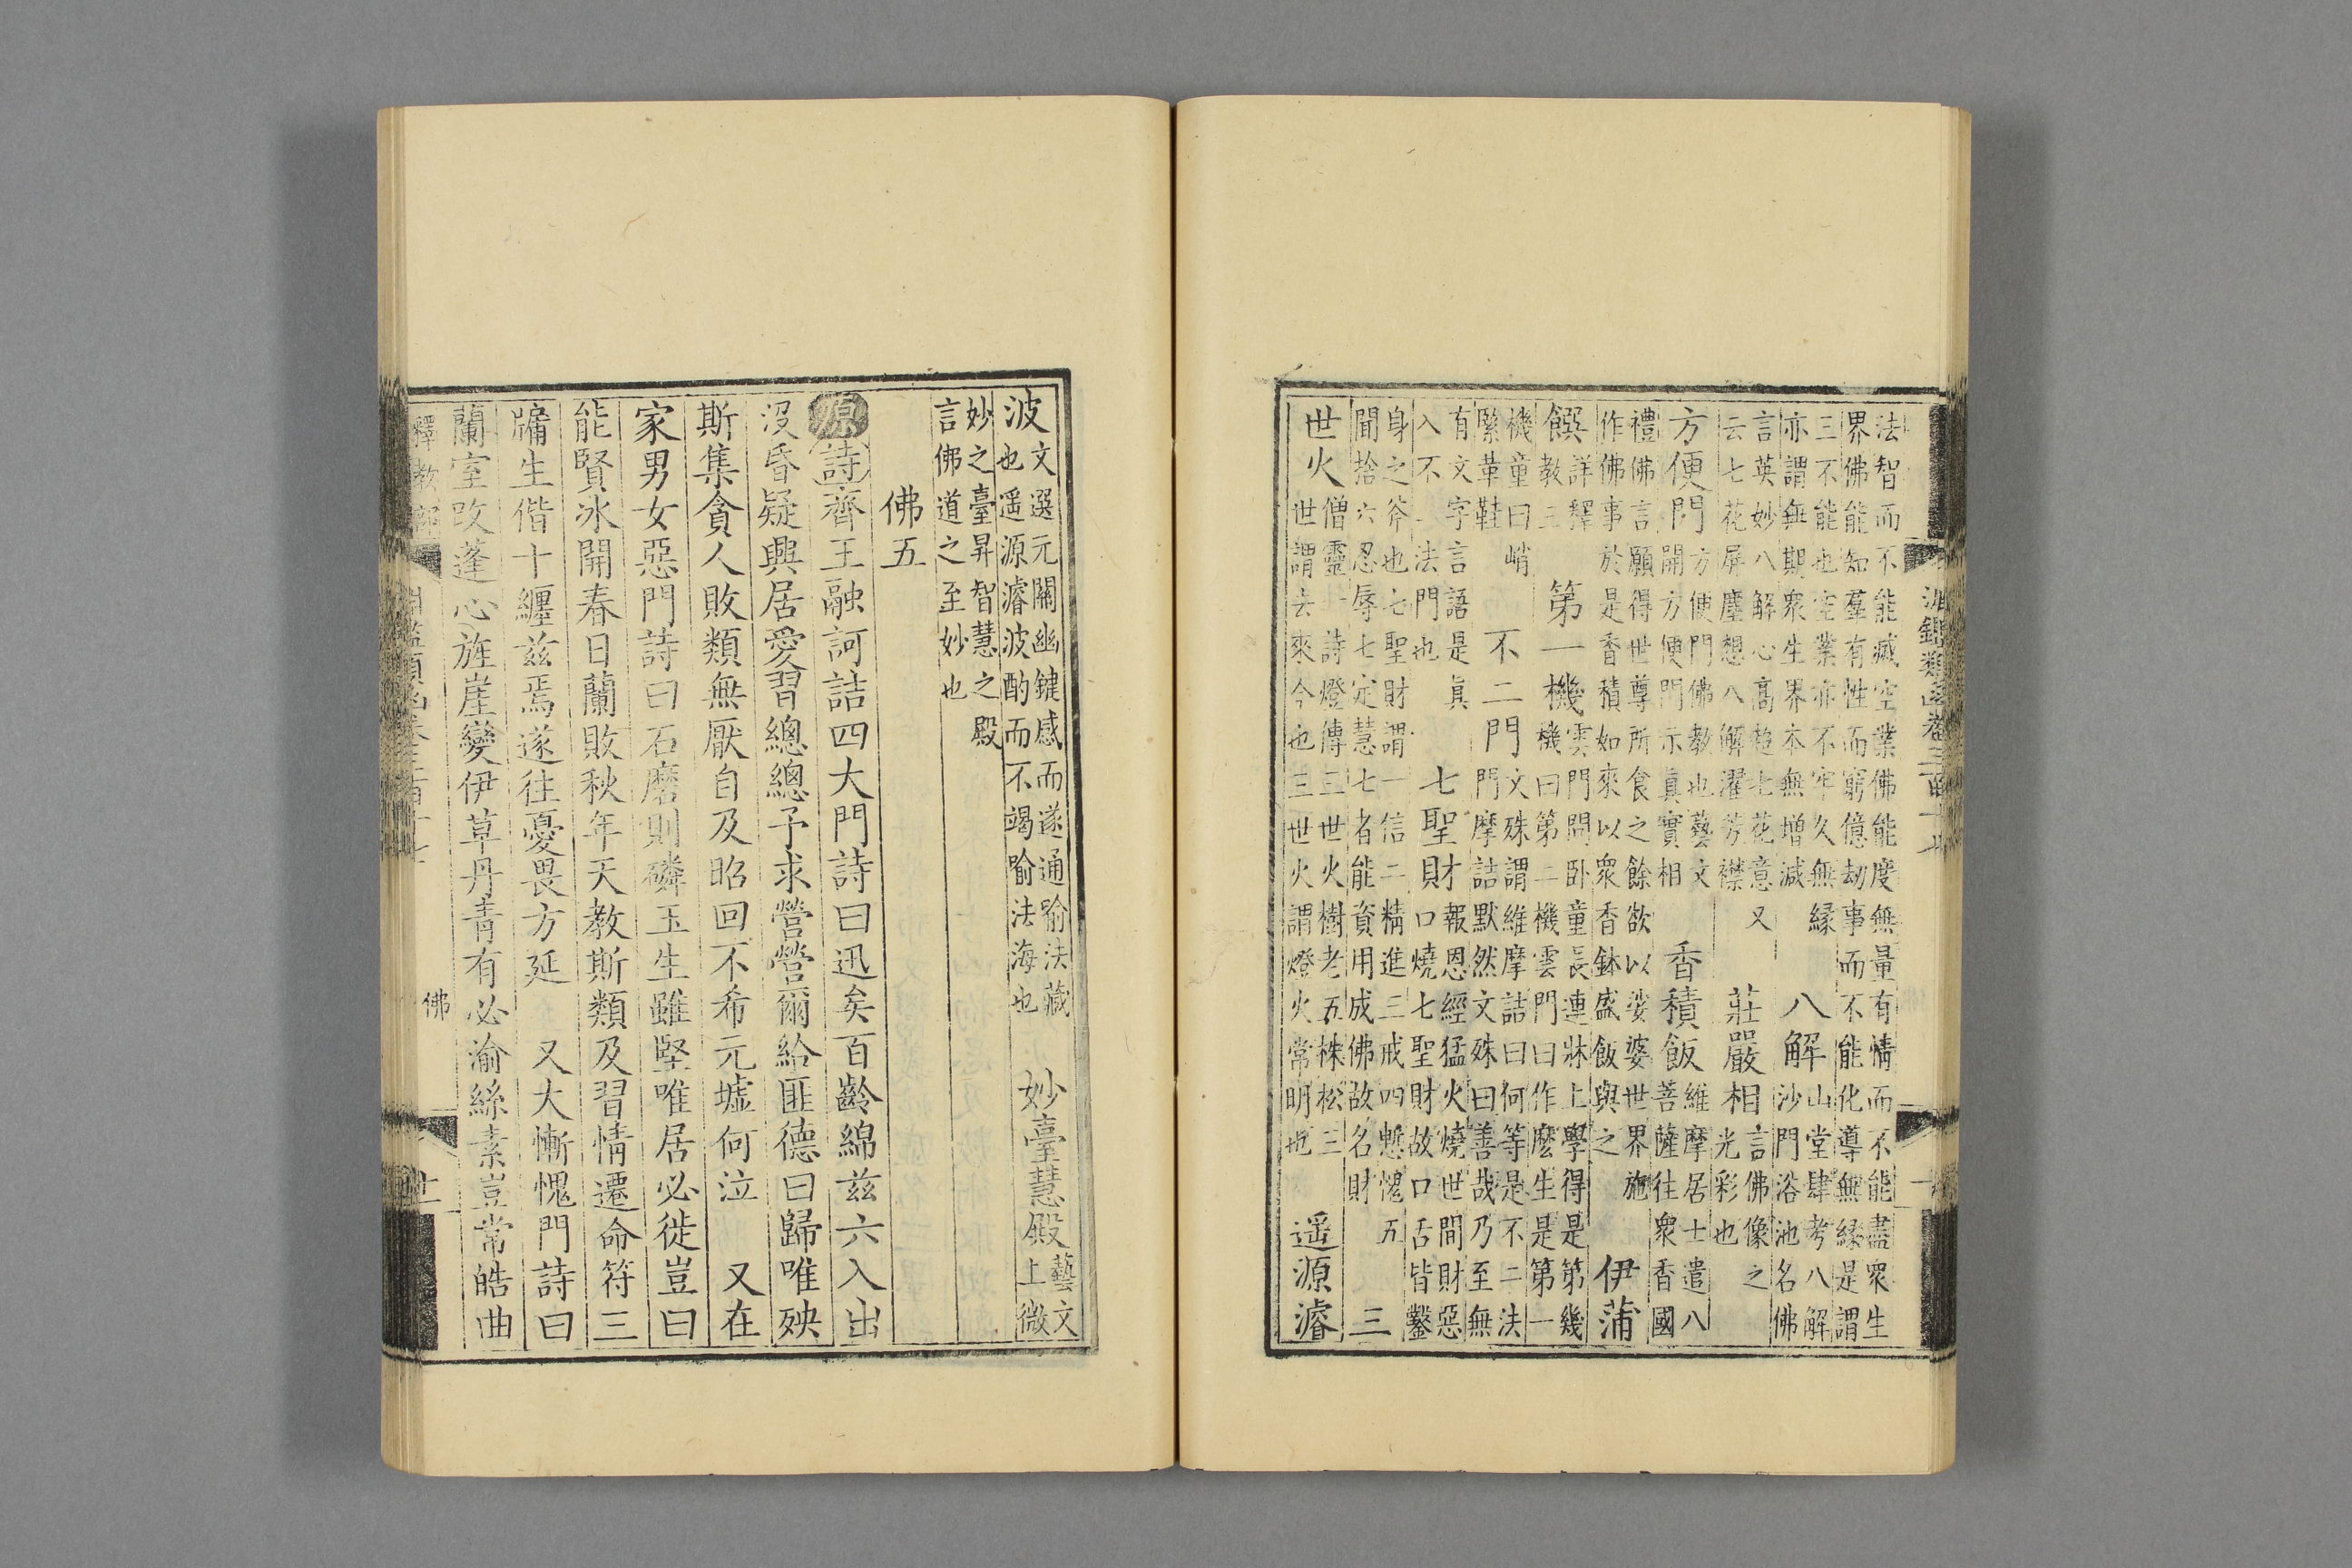 淵鑑類函卷三百十七
法智而不能滅空業佛能度無量有情而不能盡衆生
界佛能知羣有性而窮億劫事而不能化導無緣是謂
三不能也空業亦不牢久無緣
亦謂無期衆生界本無增減
八解
山堂肆考八解
沙門浴池名佛
言英妙八解心高超七花意又
云七花屏塵想八解濯芳襟
莊嚴相
言佛像之
光彩也
方便門
方便門佛教也藝文
開方便門示真實相
香積飯
維摩居士遣八
菩薩往衆香國
禮佛言願得世尊所食之餘欲以娑婆世界施
作佛事於是香積如來以衆香鉢盛飯與之
伊蒲
饌
詳釋
教三
第一機
雲門問卧童長連牀上學得是第幾
機曰第二機雲門曰作麽生是第一
機童曰峭
緊草鞋
不二門
文殊謂維摩詰曰何等是不二法
門摩詰默然文殊曰善哉乃至無
有文字言語是真
入不二法門也
七聖財
報恩經猛火燒世間財惡
口燒七聖財故口舌皆鑿
身之斧也七聖財謂一信二精進三戒四慙愧五
聞捨六忍辱七定慧七者能資用成佛故名財
三
世火
僧靈一詩燈傳三世火樹老五株松三
世謂去來今也三世火謂燈火常明也
遥源濬
波
文選元關幽鍵感而遂通喻法藏
也遥源濬波酌而不竭喻法海也
妙臺慧殿
藝文
上微
妙之臺昇智慧之殿
言佛道之至妙也
佛五
源詩齊王融訶詰四大門詩曰迅矣百齡綿兹六入出
没昏疑興居愛習總總予求營營爾給匪德曰歸唯殃
斯集貪人敗類無厭自及昭回不希元墟何泣 又在
家男女惡門詩曰石磨則磷玉生雖堅唯居必徙豈曰
能賢冰開春日蘭敗秋年天教斯類及習情遷命符三
牖生偕十纏兹焉遂往憂畏方延 又大慚愧門詩曰
蘭室改蓬心旌崖變伊草丹青有必渝絲素豈常皓曲
釋教部
淵鑑類函卷三百十七
佛